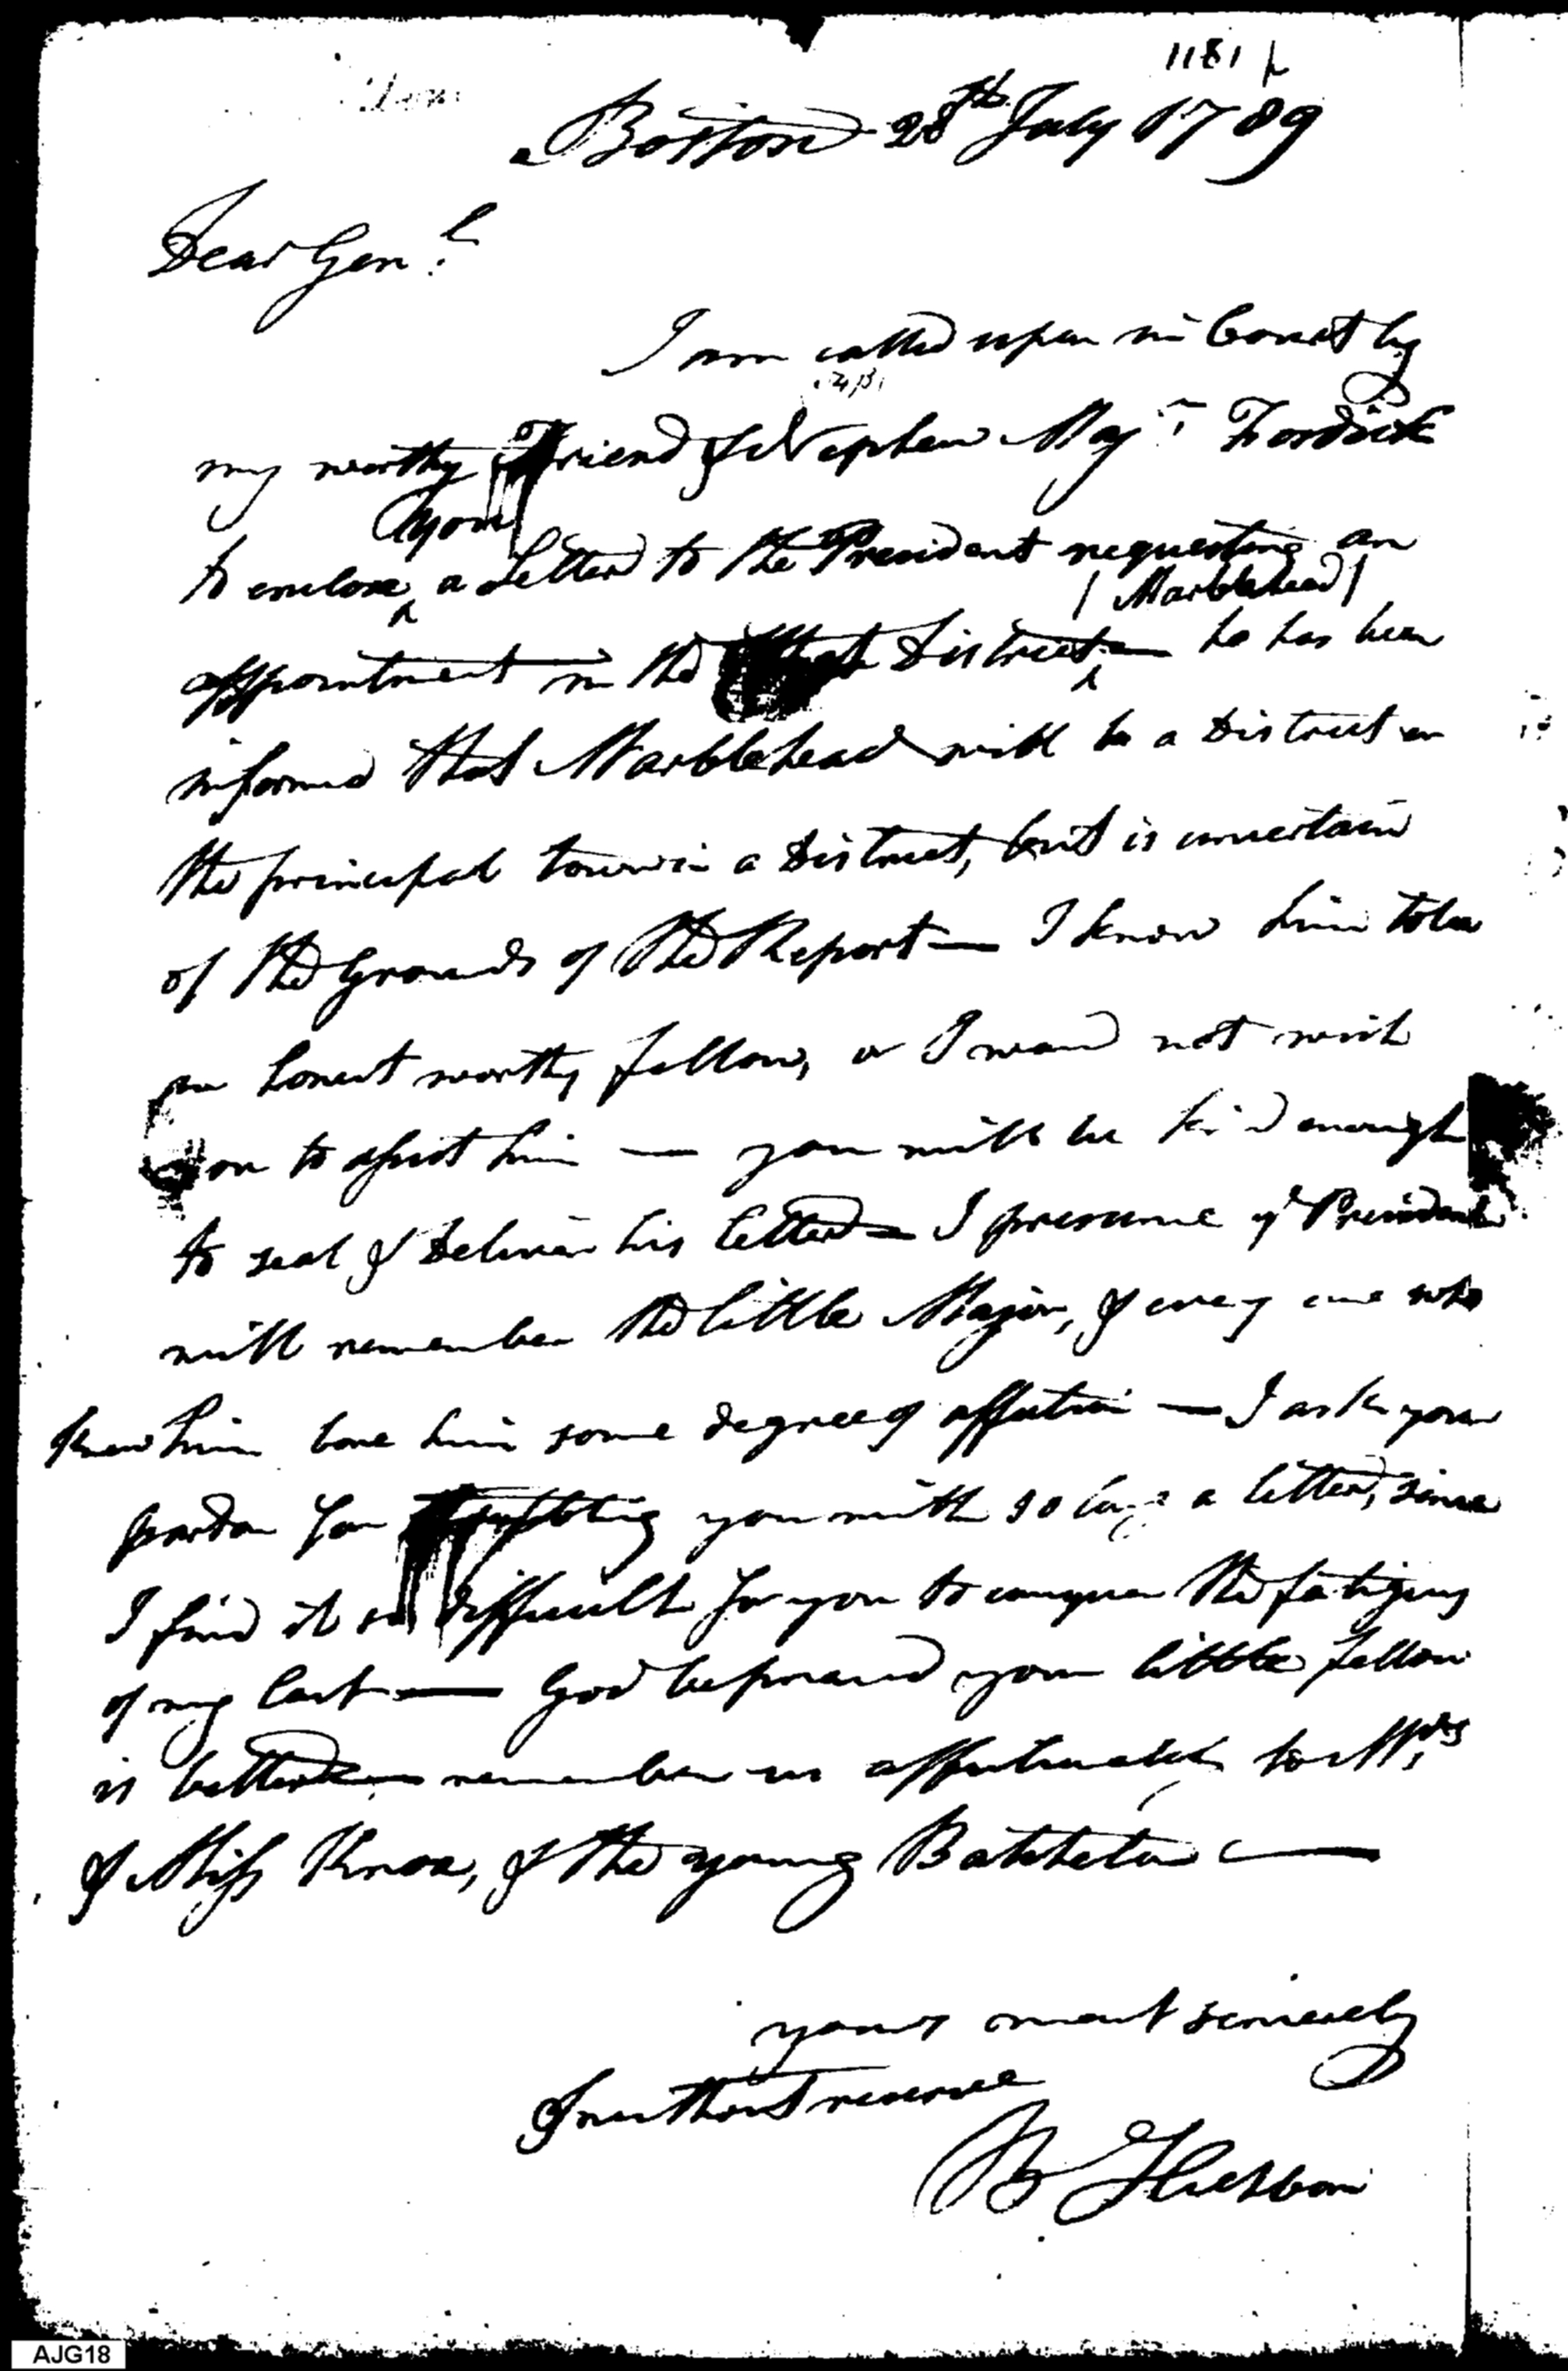 1181
Boston 28th July 1789
Dear Genl
I am called upon in Court by
my worthy Friend & Nephew Majr Fosdick
you
to enclose a Letter to the President requesting an
(Marblehead)
appointment in the District — he has been
informed that Marblehead will be a District or
the principal town in a District, but is uncertain
of the Grounds of the Report — I know him to be
an honest worthy fellow, or I woud not wish
you to assist him — you will be kind enough
to seal & deliver his letter — I presume ye President
will remember the little Major, & every one who
knew him bore him some degree of affection — I ask your
pardon for troubling you with so long a letter, since
I find it so difficult for you to conquer the fatigues
of my last — God be praised your little fellow
is better — remember us affectionately to Mrs
& Miss Knox, & the young Batchelor —
yours most sincerely
& without reserve
B Hichborn
AJG18